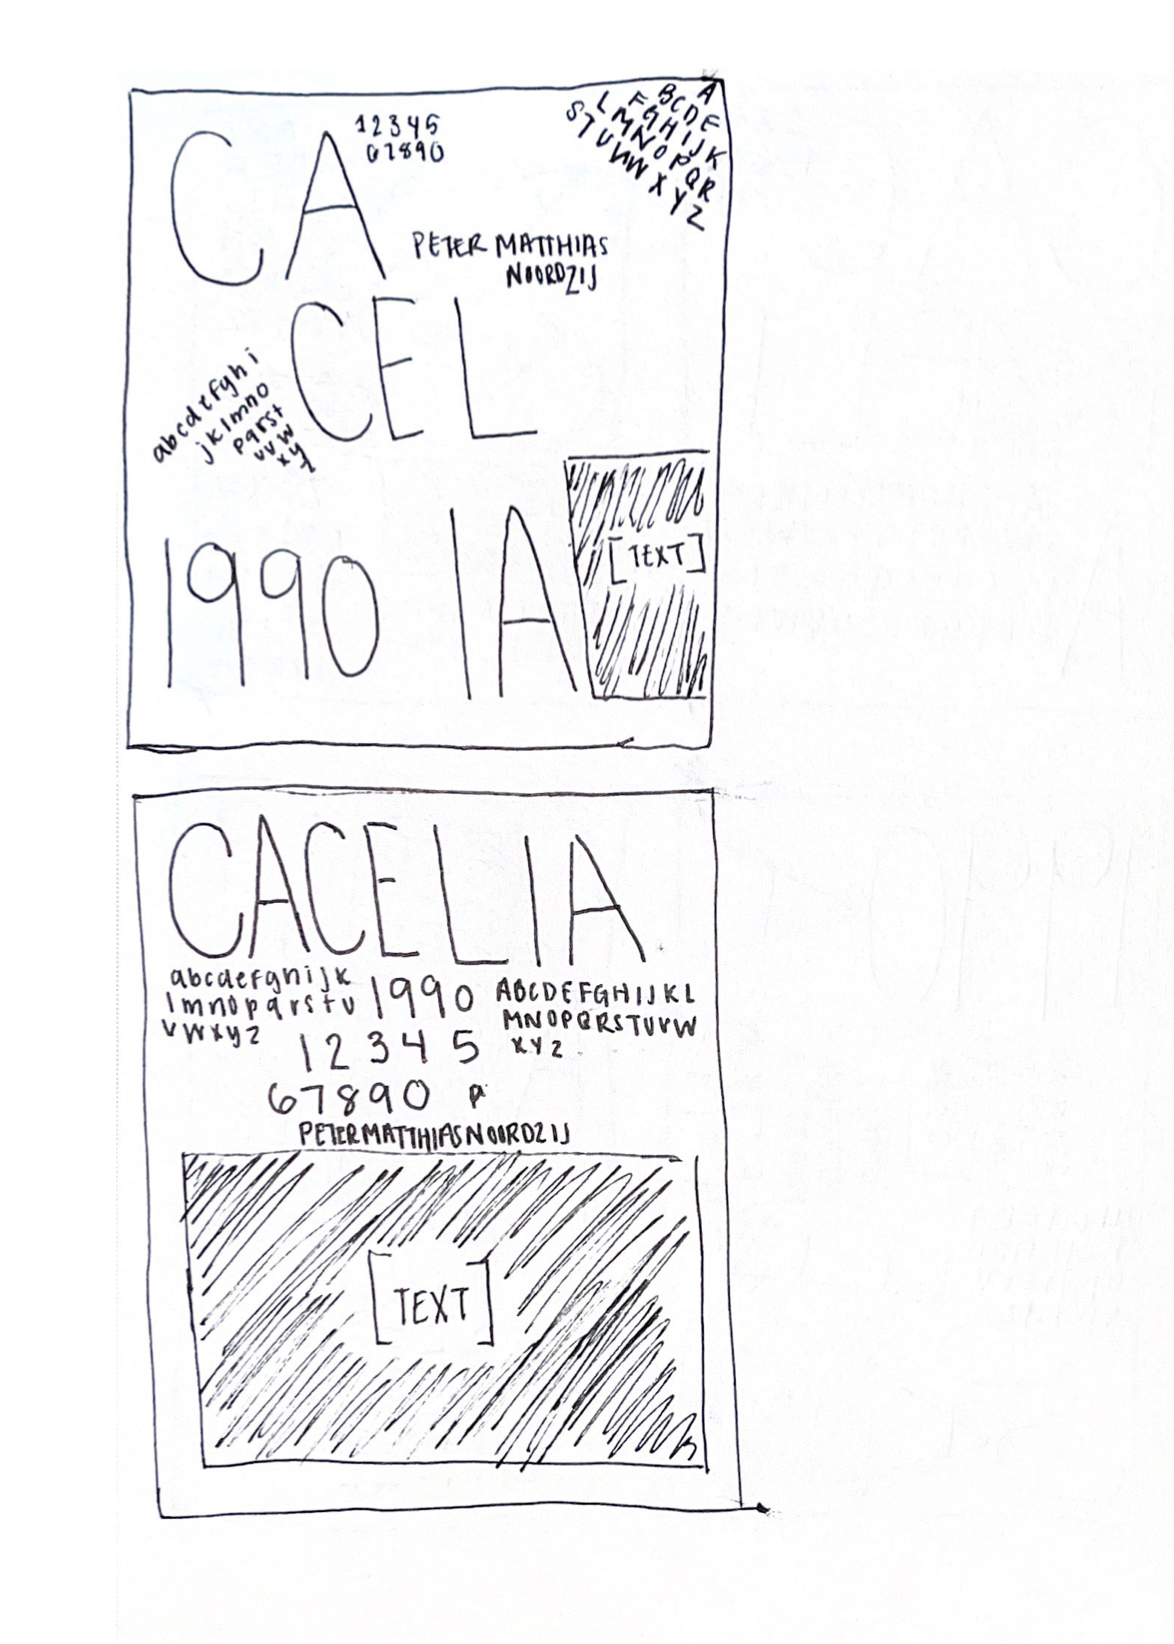 CA
12345
67890
A
BCDE
FGHIJK
LMNOPQR
STUVWXYZ
PETER MATTHIAS
NOORDZIJ
CEL
abcdefghi
jklmno
pqrst
uvw
xy
z
1990
IA
[TEXT]
CACELIA
abcdefghijk
lmnopqrstu
vwxyz
1990
ABCDEFGHIJKL
MNOPQRSTUVW
XYZ
12345
67890
PETER MATTHIAS NOORDZIJ
[TEXT]